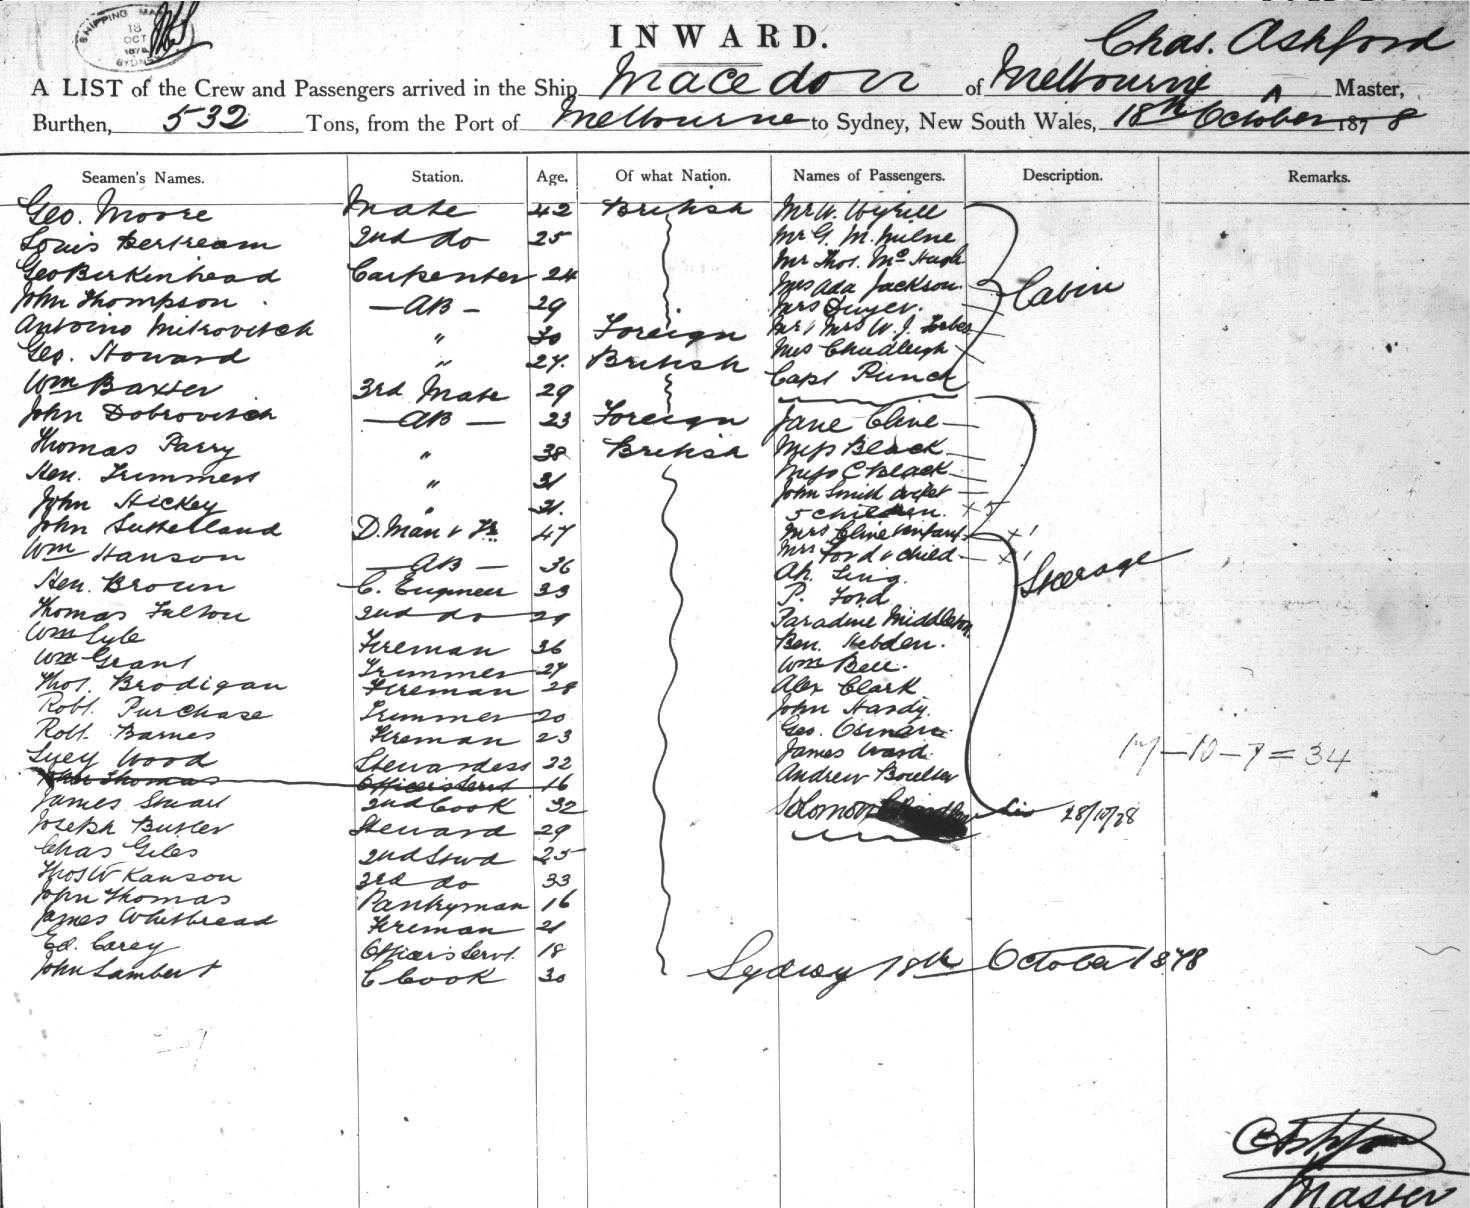 SHIPPING MA
18
OCT
1878
SYDN
INWARD.
Chas. Ashford
A LIST of the Crew and Passengers arrived in the Ship Macedon of Melbourne Master,
Burthen, 532 Tons, from the Port of Melbourne to Sydney, New South Wales, 18th October 1878
Seamen's Names. Station. Age. Of what Nation. Names of Passengers. Description. Remarks.
Geo. Moore Mate 42 British Mr W. Wyhill
Louis Bertream 2nd do 25 Mr G. M. Milne
Geo Birkinhead Carpenter 24 Mr Thos. McHugh
John Thompson — AB — 29 Mrs Ada Jackson Cabin
Antoino Mitrovitch " 30 Foreign Mrs Dwyer.
Geo. Howard " 27. British Mr & Mrs W. J. Forbes
Wm Baxter 3rd Mate 29 Mrs Chudleigh
John Dobrovitch — AB — 23 Foreign Capt Punch
Thomas Parry " 38 British Jane Cline
Hen. Trimmers " 31 Miss Black
John Hickey " 31. Miss C Black
John Sutherland D. Man & 47 John Smith
Wm Hanson — AB — 36 5 children. x5
Hen. Brown C. Engineer 33 Mrs Cline & infant x1
Thomas Fulton 2nd do 29 Mrs Ford & child x1
Wm Lyle Fireman 36 Ah Ling. Steerage
Wm Grant Trimmer 27 P. Ford
Thos. Brodigan Fireman 28 Paradine Middleton
Robt. Purchase Trimmer 20 Ben. Hebden.
Robt. Barnes Fireman 23 Wm Bell.
Lucy Wood Stewardess 22 Alex Clark
John Thomas Officers Servt 16 John Hardy.
James Stuart 2nd Cook 32 Geo.
Joseph Butler Steward 29 James Ward
Chas Giles 2nd Stwd 25 Andrew Boulter
Thos W Kanson 3rd do 33 Solomon 28/10/78
John Thomas Pantryman 16 17-10-7=34
James Whitbread Fireman 21
Ed. Carey Officers Servt. 18
John Lambert C Cook 30
Sydney 18th October 1878
C Ashford
Master